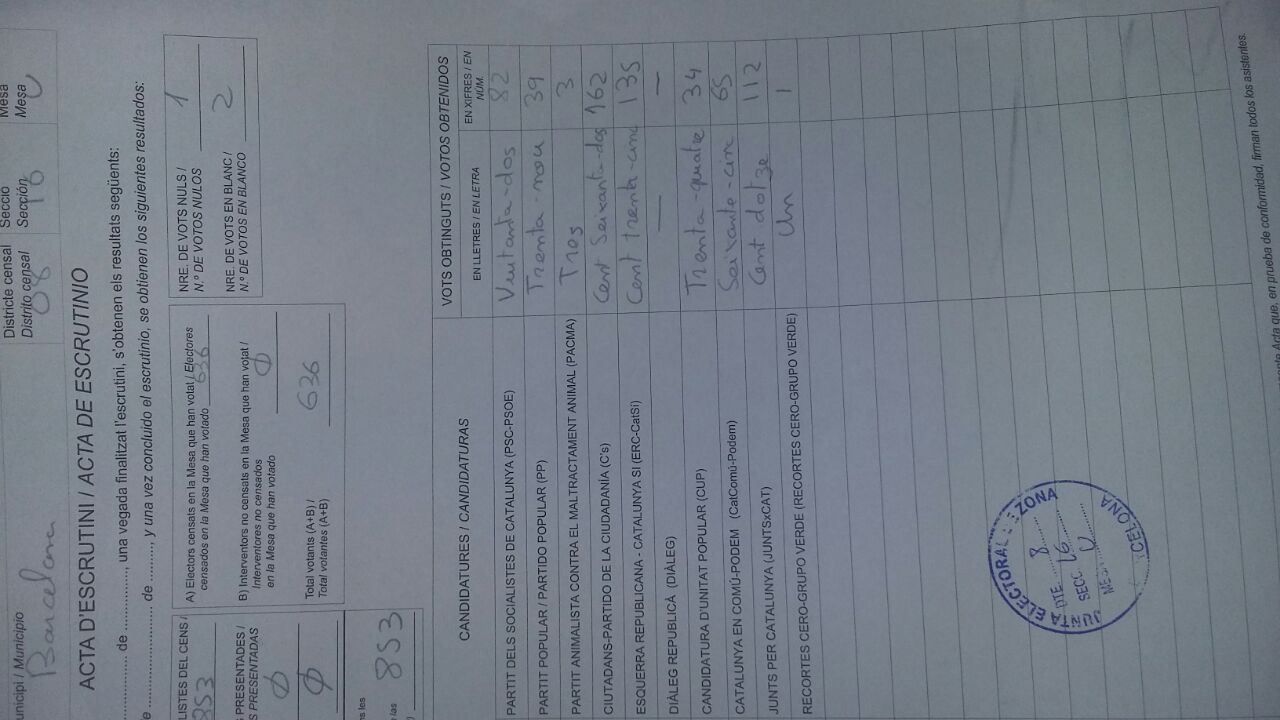 Municipi / Municipio
Barcelona
Districte censal
Distrito censal
08
Secció
Sección
16
Mesa
Mesa
U
ACTA D'ESCRUTINI / ACTA DE ESCRUTINIO
de ................, una vegada finalitzat l'escrutini, s'obtenen els resultats següents:
de .........., y una vez concluido el escrutinio, se obtienen los siguientes resultados:
LISTES DEL CENS /
853
PRESENTADES /
PRESENTADAS
Ø
Ø
853
A) Electors censats en la Mesa que han votat / Electores
censados en la Mesa que han votado 636
B) Interventors no censats en la Mesa que han votat /
Interventores no censados
en la Mesa que han votado Ø
Total votants (A+B) /
Total votantes (A+B) 636
NRE. DE VOTS NULS /
N.º DE VOTOS NULOS 1
NRE. DE VOTS EN BLANC /
N.º DE VOTOS EN BLANCO 2
CANDIDATURES / CANDIDATURAS
VOTS OBTINGUTS / VOTOS OBTENIDOS
EN LLETRES / EN LETRA
EN XIFRES / EN
NÚM.
PARTIT DELS SOCIALISTES DE CATALUNYA (PSC-PSOE) Vuitanta-dos 82
PARTIT POPULAR / PARTIDO POPULAR (PP) Trenta-nou 39
PARTIT ANIMALISTA CONTRA EL MALTRACTAMENT ANIMAL (PACMA) Tres 3
CIUTADANS-PARTIDO DE LA CIUDADANÍA (C's) Cent Seixanta-dos 162
ESQUERRA REPUBLICANA - CATALUNYA SÍ (ERC-CatSí) Cent trenta-cinc 135
DIÀLEG REPUBLICÀ (DIÀLEG) — —
CANDIDATURA D'UNITAT POPULAR (CUP) Trenta-quatre 34
CATALUNYA EN COMÚ-PODEM (CatComú-Podem) Seixanta-cinc 65
JUNTS PER CATALUNYA (JUNTSxCAT) Cent dotze 112
RECORTES CERO-GRUPO VERDE (RECORTES CERO-GRUPO VERDE) Un 1
JUNTA ELECTORAL ZONA
DTE. 8
SECC. 16
MESA U
presente Acta que, en prueba de conformidad, firman todos los asistentes.